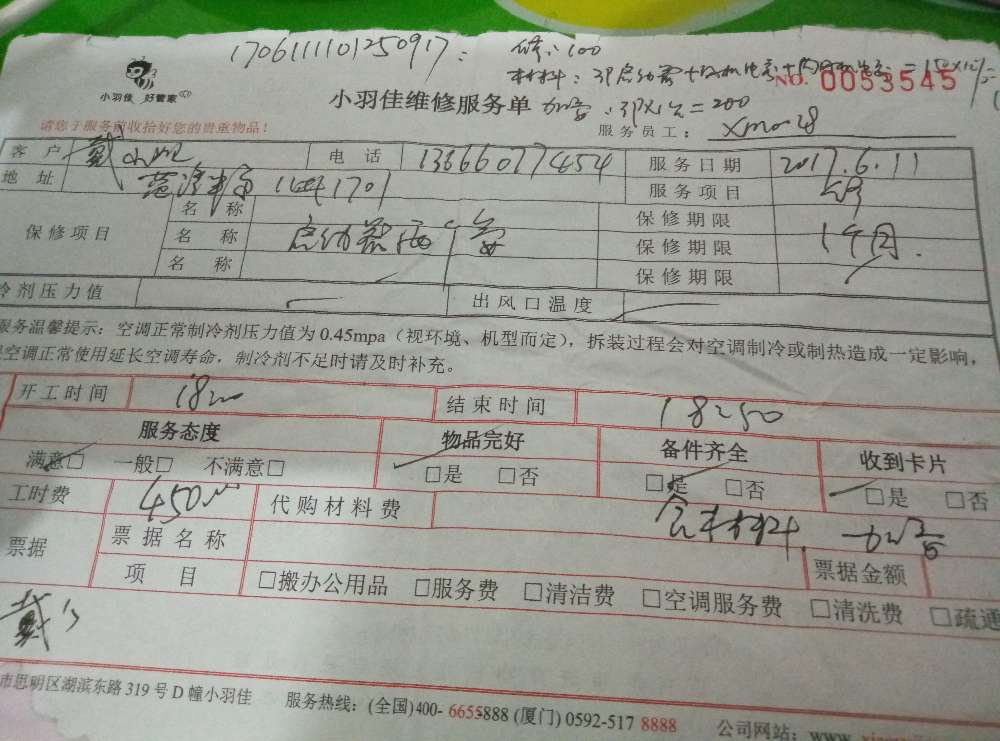 1706111101250917
修:100
材料:3P启动器+
=150
小羽佳 好管家
小羽佳维修服务单
加雪:3PX =200
NO. 0053545
请您于服务前收拾好您的贵重物品!
服务员工: xm0028
客户 戴小姐 电话 13666077454 服务日期 2017.6.11
地址 1701 服务项目
保修项目
名称 保修期限
名称 启动器 保修期限 1个月.
名称 保修期限
冷剂压力值 出风口温度
服务温馨提示:空调正常制冷剂压力值为0.45mpa(视环境、机型而定),拆装过程会对空调制冷或制热造成一定影响,
空调正常使用延长空调寿命,制冷剂不足时请及时补充。
开工时间 18:00 结束时间 18:50
服务态度 物品完好 备件齐全 收到卡片
满意□ 一般□ 不满意□ □是 □否 □是 □否 □是 □否
工时费 450 代购材料费 含材料.
票据 票据名称 票据金额
项目 □搬办公用品 □服务费 □清洁费 □空调服务费 □清洗费 □疏通
戴
市思明区湖滨东路319号D幢小羽佳 服务热线:(全国)400-6655888 (厦门)0592-517 8888 公司网站:www.